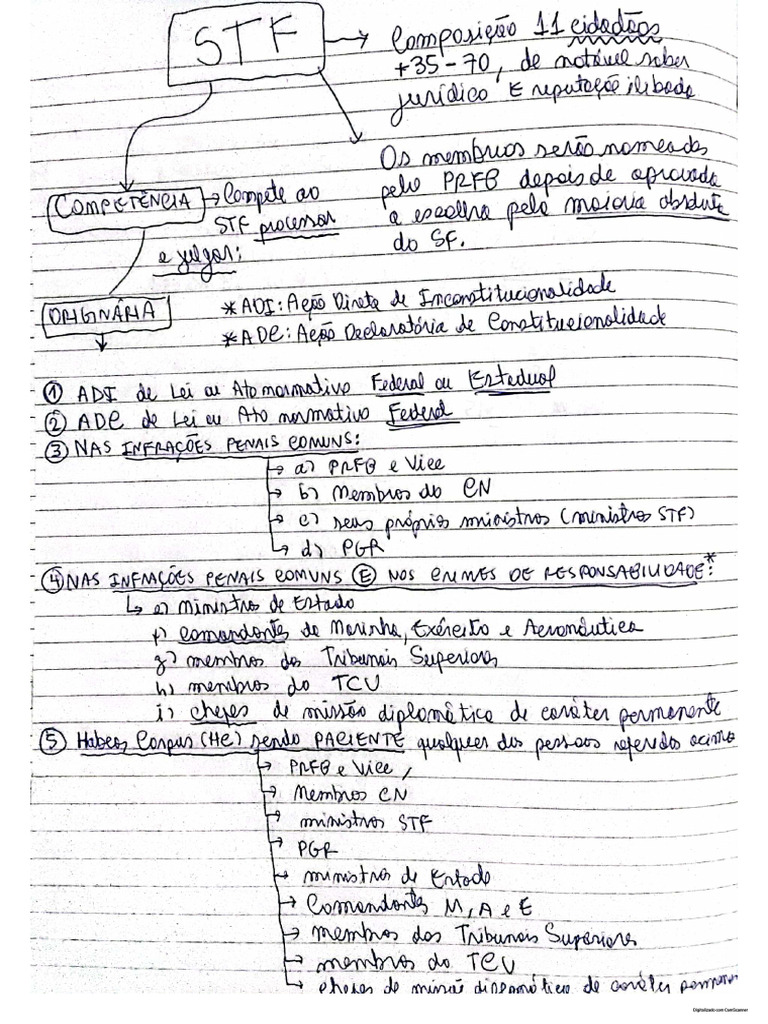 STF
→ Composição 11 cidadãos
+35-70, de notável saber
jurídico E reputação ilibada
Os membros serão nomeados
pelo PRFB depois de aprovada
a escolha pela maioria absoluta
do SF.
COMPETÊNCIA → Compete ao
STF processar
e julgar:
ORIGINÁRIA
*ADI: Ação Direta de Inconstitucionalidade
*ADC: Ação Declaratória de Constitucionalidade
① ADI de Lei ou Ato normativo Federal ou Estadual
② ADC de Lei ou Ato normativo Federal
③ NAS INFRAÇÕES PENAIS COMUNS:
→ a) PRFB e Vice
→ b) Membros do CN
→ c) seus próprios ministros (ministros STF)
→ d) PGR
④ NAS INFRAÇÕES PENAIS COMUNS Ⓔ NOS CRIMES DE RESPONSABILIDADE*:
↳ e) ministros de Estado
f) Comandantes da Marinha, Exército e Aeronáutica
g) membros dos Tribunais Superiores
h) membros do TCU
i) chefes de missão diplomática de caráter permanente
⑤ Habeas Corpus (HC) sendo PACIENTE qualquer das pessoas referidas acima
→ PRFB e Vice,
→ Membros CN
→ ministros STF
→ PGR
→ ministros de Estado
→ Comandantes M, A e E
→ membros dos Tribunais Superiores
→ membros do TCU
→ chefes de missão diplomática de caráter permanen
Digitalizado com CamScanner